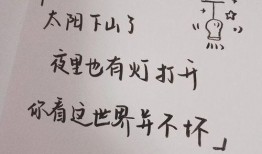 「
太阳下山了
夜里也有灯打开
你看这世界并不坏」